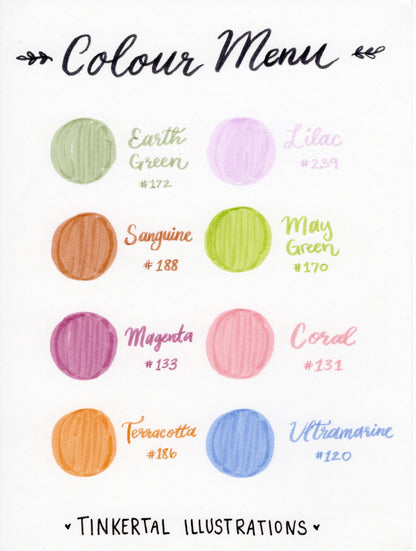 Colour Menu
Earth
Green
#172
Lilac
#239
Sanguine
#188
May
Green
#170
Magenta
#133
Coral
#131
Terracotta
#186
Ultramarine
#120
TINKERTAL ILLUSTRATIONS